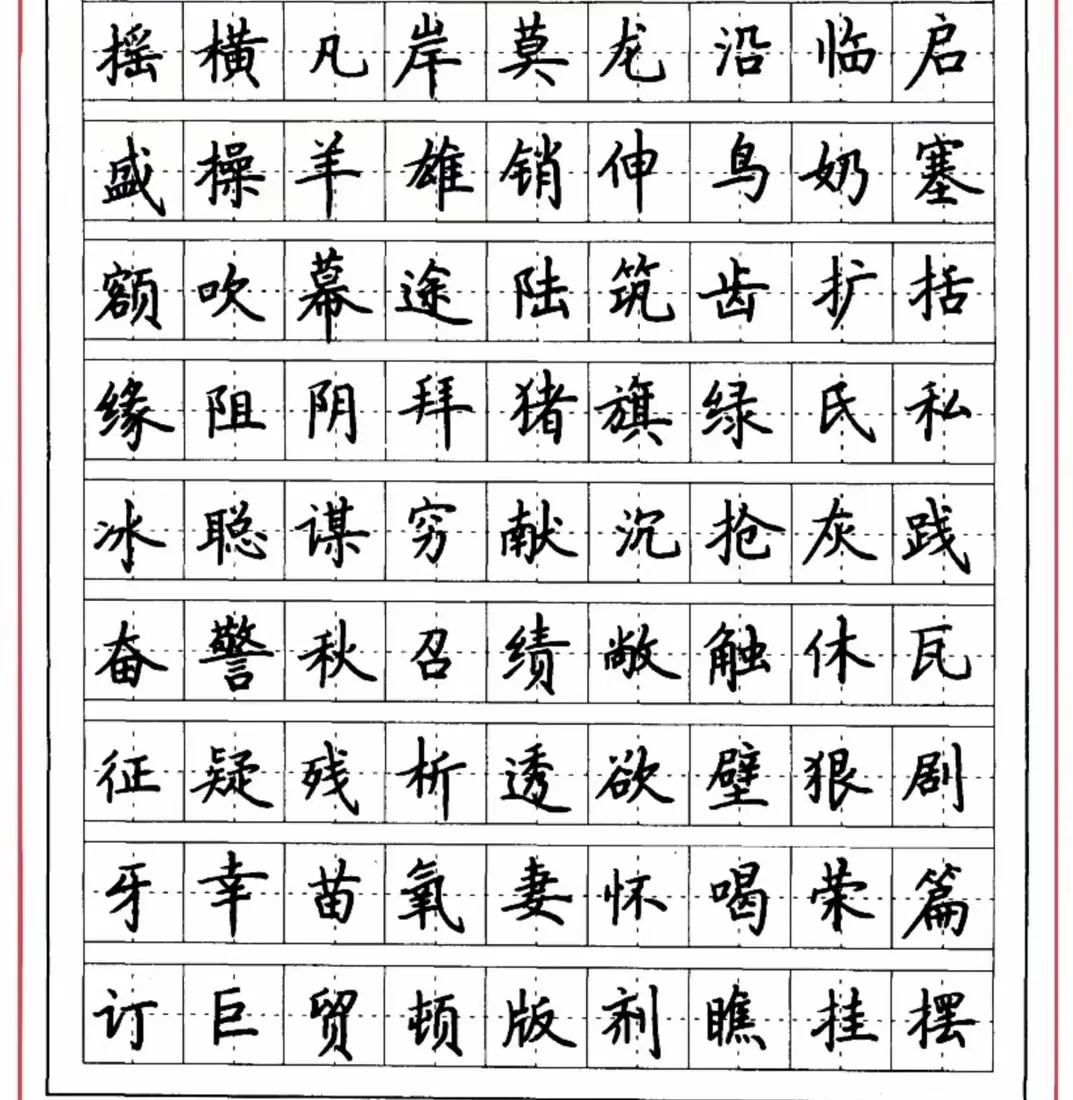 摇横凡岸莫龙沿临启
盛操羊雄销伸鸟奶塞
额吹幕途陆筑齿扩括
缘阻阴拜猪旗绿氏私
冰聪谋穷献沉抢灰践
奋警秋召绩敞触休瓦
征疑残析透欲壁狠剧
牙幸苗氧妻怀喝荣篇
订巨贸顿版剂瞧挂摆